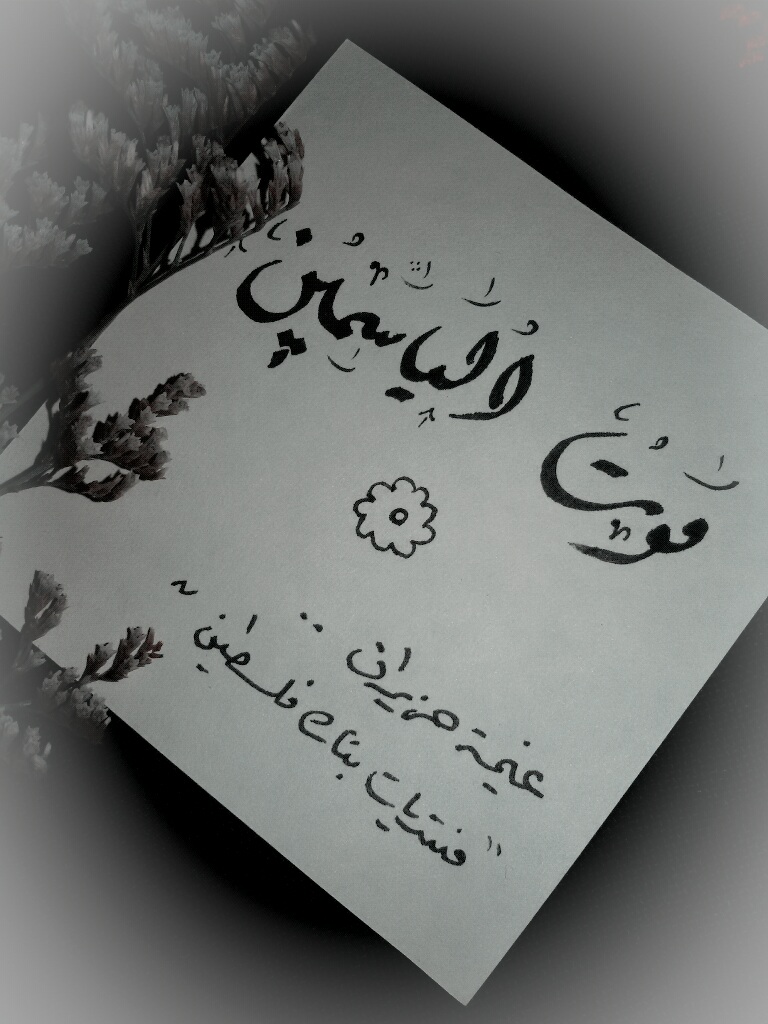 موت الياسمين
غيمة حزيران ..
"منتديات بنات فلسطين ~